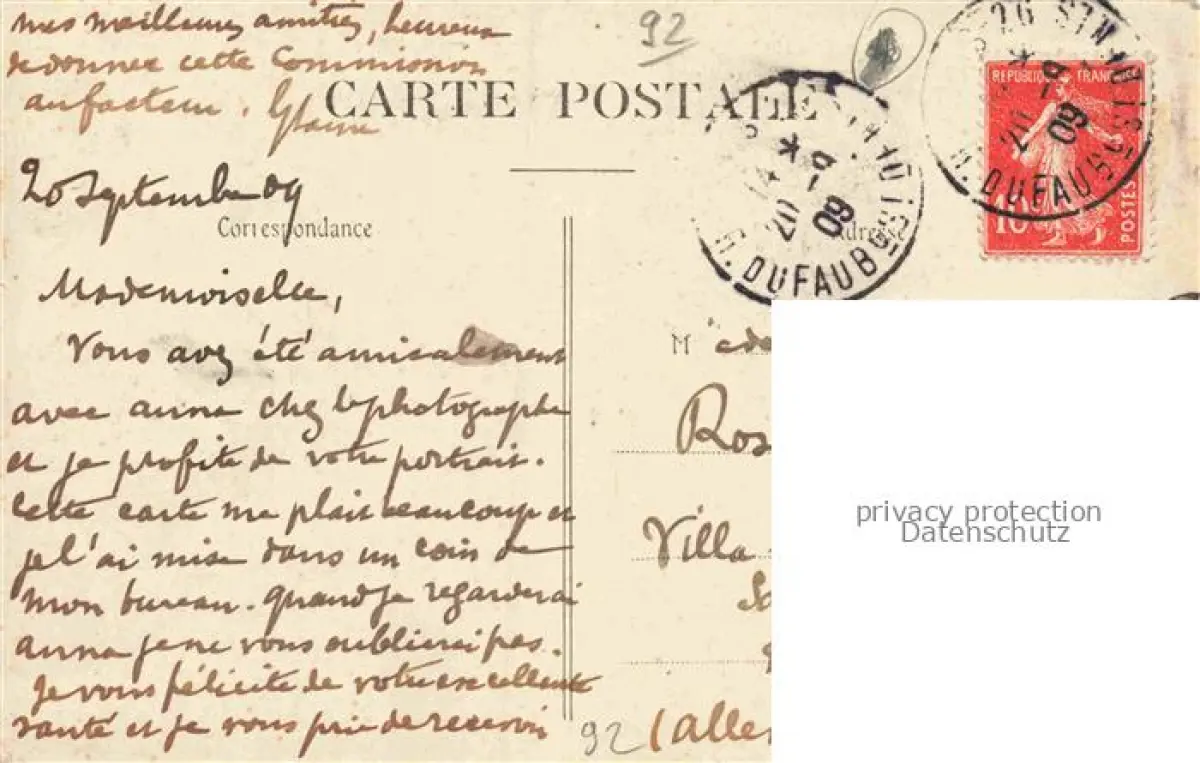 mes meilleures amitiés, heureux
de donner cette Commission
au facteur.
92
CARTE POSTALE
20 Septembre 09
Correspondance
Adresse
REPUBLIQUE FRANÇAISE
10
POSTES
20 - 9
09
R. DUFAUBG ST
20 - 9
09
R. DUFAUBG ST
Mademoiselle,
Vous avez été amicalement
avec anna chez le photographe
et je profite de votre portrait.
Cette carte me plait beaucoup et
je l'ai mise dans un coin de
mon bureau. quand je regarderai
anna je ne vous oublierai pas.
Je vous félicite de votre excellente
santé et je vous prie de recevoir
M
Ros
Villa
92
(alle
privacy protection
Datenschutz